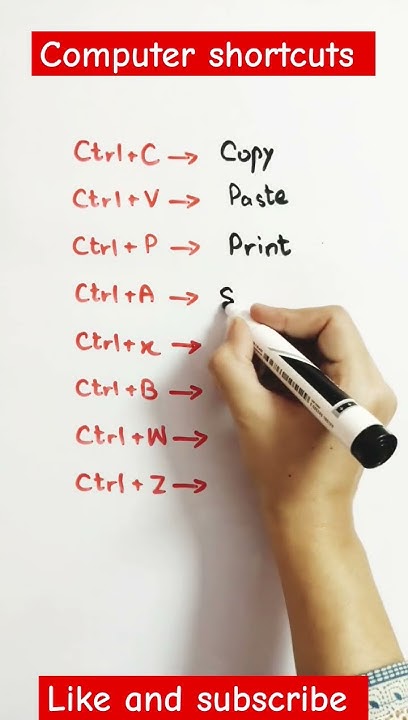 Computer shortcuts
Ctrl+C → Copy
Ctrl+V → Paste
Ctrl+P → Print
Ctrl+A → S
Ctrl+x →
Ctrl+B →
Ctrl+W →
Ctrl+Z →
Like and subscribe